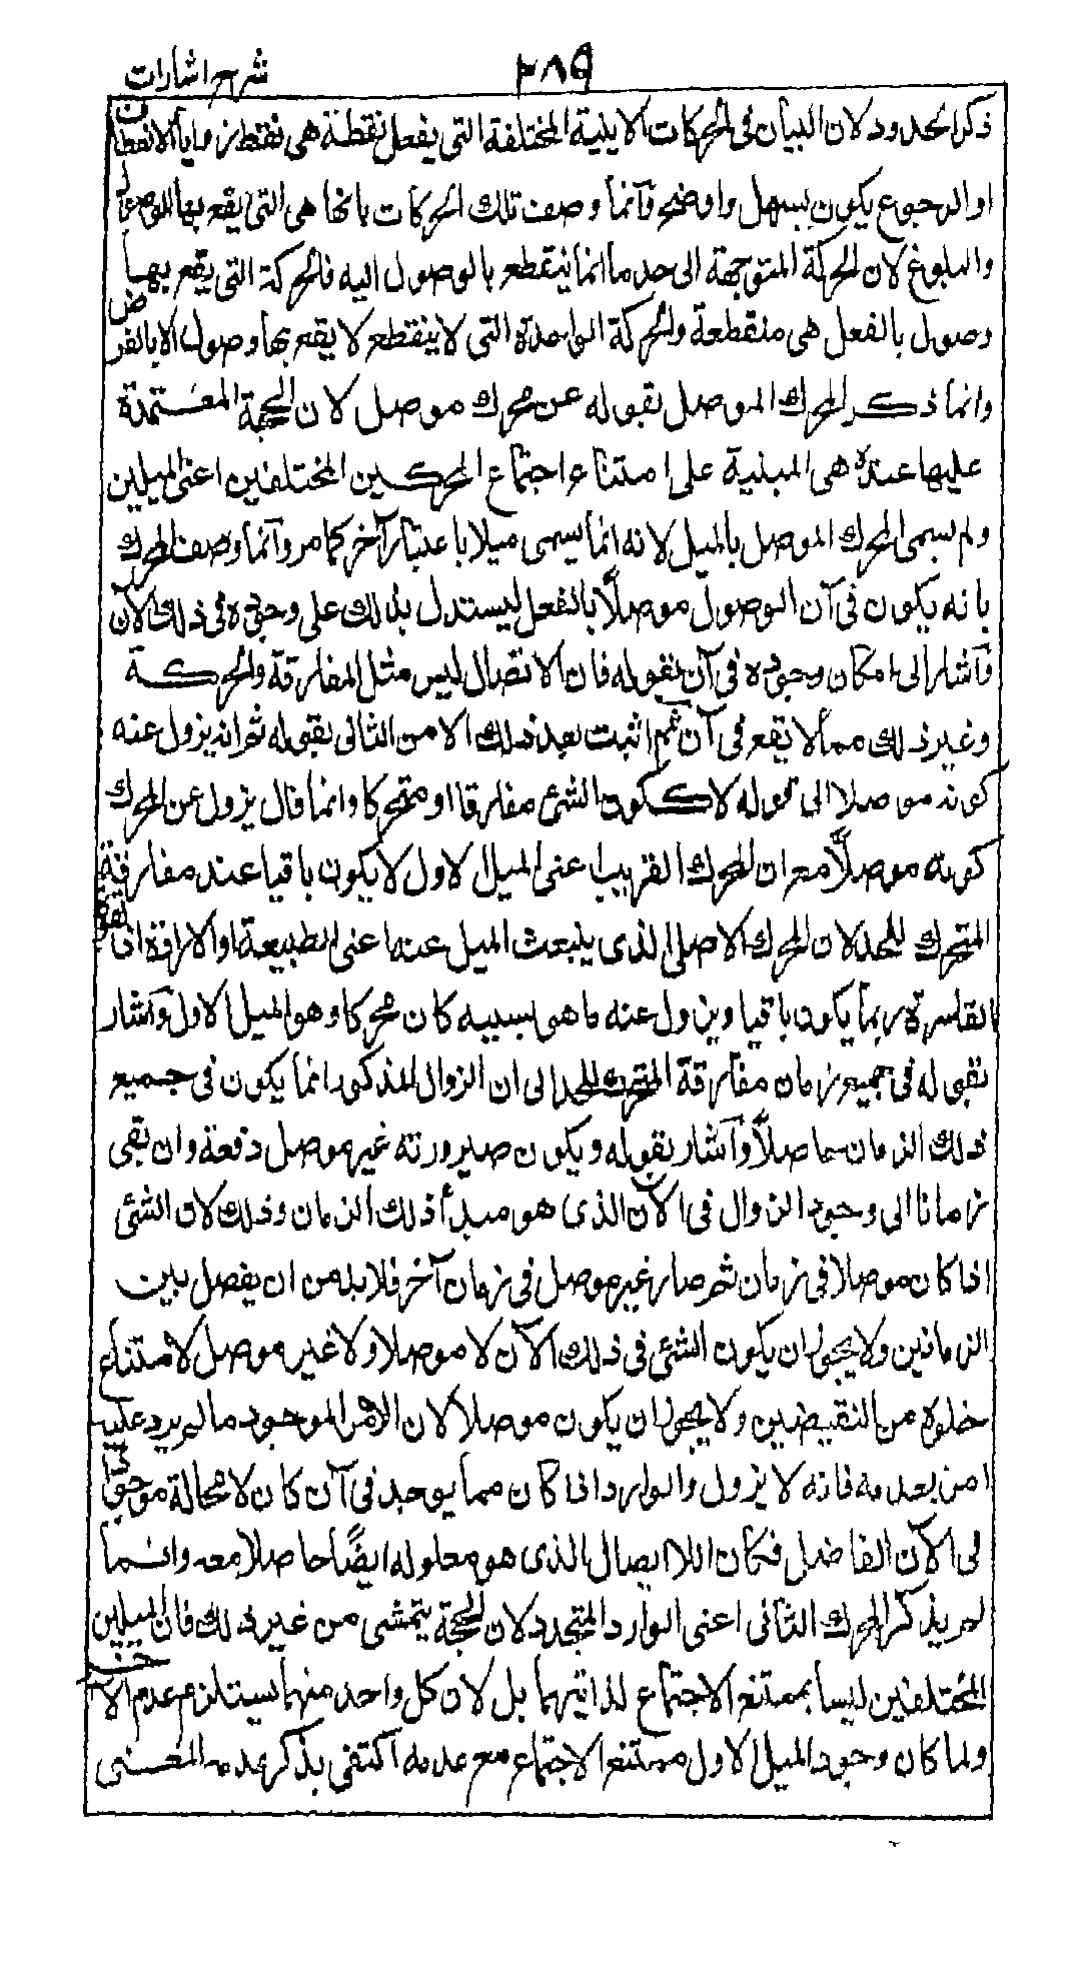 ٢٨٩ شرح اشارات
ذكر الحدود لان البيان فى الحركات الاينية المختلفة التى يفعل نقطة هى نقط زمايا الانعطاف
او الرجوع يكون يسهل واوضح وآنما وصف تلك الحركات بانها هى التى يقع بها الوصول
والبلوغ لان الحركة المتوجهة الى حد ما انما ينقطع بالوصول اليه فالحركة التى يقع بها
وصول بالفعل هى منقطعة والحركة الواحدة التى لا ينقطع لا يقع بها وصول الا بالفرض
وانما ذكر المحرك الموصل بقوله عن محرك موصل لان الحجة المعتمدة
عليها عنده هى المبنية على امتناع اجتماع المحركين المختلفين اعنى الميلين
ولم يسمى المحرك الموصل بالميل لانه انما يسمى ميلا باعتبار آخر كما مر وآنما وصف المحرك
بانه يكون فى آن الوصول موصلاً بالفعل ليستدل بذلك على وجوده فى ذلك الآن
وآشار الى امكان وجوده فى آن بقوله فان الاتصال ليس مثل المفارقة والحركة
وغير ذلك مما لا يقع فى آن ثم اثبت بعد ذلك الامر الثانى بقوله ثم انه يزول عنه
كونه موصلا الى قوله لا ككون الشئ مفارقا او متحركا وانما قال يزول عن المحرك
كونه موصلاً مع ان المحرك القريب اعنى الميل الاول لا يكون باقيا عند مفارقة
المتحرك للحد لان المحرك الاصلى الذى ينبعث الميل عنه اعنى الطبيعة او الارادة او القوة
القاسرة ربما يكون باقيا ويزول عنه ما هو بسببه كان محركا وهو الميل الاول وآشار
بقوله فى جميع زمان مفارقة المتحرك للحد الى ان الزوال المذكور انما يكون فى جميع
ذلك الزمان حاصلاً وآشار بقوله ويكون صيرورته غير موصل دفعة وان بقى
زمانا الى وجود الزوال فى الآن الذى هو مبدأ ذلك الزمان وذلك لان الشئ
اذا كان موصلا فى زمان ثم صار غير موصل فى زمان آخر فلابد من ان يفصل بين
الزمانين ولا يجوز ان يكون الشئ فى ذلك الآن لا موصلا ولا غير موصل لامتناع
خلوه من النقيضين ولا يجوز ان يكون موصلا لان الامر الموجود ما لم يرد عليه
امر يعدمه فانه لا يزول والوارد اذا كان مما يوجد فى آن كان لا محالة موجودا
فى الآن الفاصل فكان اللا ايصال الذى هو معلوله ايضاً حاصلا معه وانما
لم يذكر المحرك الثانى اعنى الوارد المتجدد لان الحجة يتمشى من غير ذلك فان الميلين
المختلفين ليسا بممتنع الاجتماع لذاتيهما بل لان كل واحد منهما يستلزم عدم الآخر
ولما كان وجود الميل الاول ممتنع الاجتماع مع عدمه آكتفى بذكر عدمه المعنى